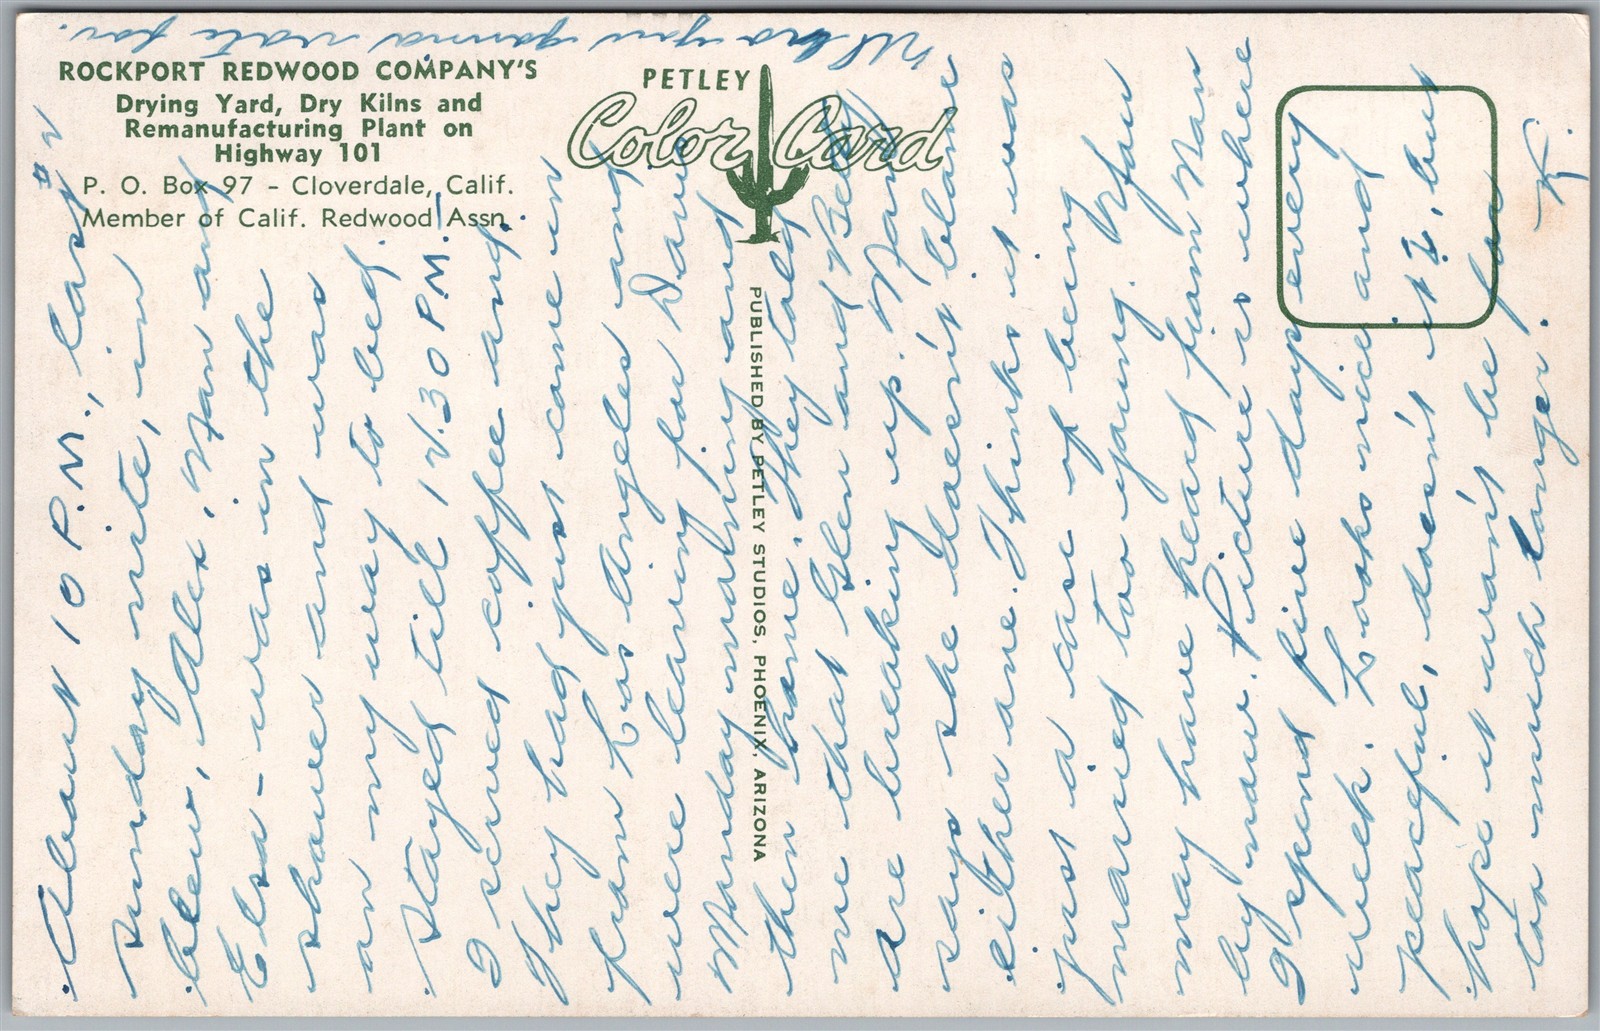 ROCKPORT REDWOOD COMPANY'S
Drying Yard, Dry Kilns and
Remanufacturing Plant on
Highway 101
P. O. Box 97 - Cloverdale, Calif.
Member of Calif. Redwood Assn.
PETLEY
Color Card
PUBLISHED BY PETLEY STUDIOS, PHOENIX, ARIZONA
#2
About 10 P.M., last
Sunday nite, in
blew, Alex, Nan and
Elsa - was in the
shower and was
on my way to bed.
Stayed till 12.30 P.M.
I served coffee and.
They had just come in
from Los Angeles and
were leaving for Davis
Monday morning and
then home. They told
me that Glen and Betty
are breaking up. Mom
says she doesn't blame
either one. Thinks it was
just a case of being
married too young. You
may have heard from Nan
by now. Picture is where
I spend five days every
week. Looks nice and
peaceful, doesn't it?, but
hope it won't be for
too much longer.
K.
Who you gonna vote for.